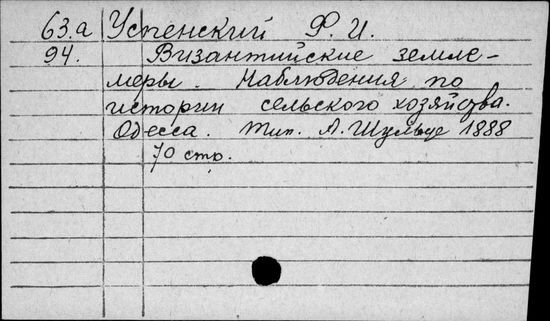 63.а Успенский Ф. И.
94. Византийские земле-
меры. Наблюдения по
истории сельского хозяйства.
Одесса. Тип. А. Шульце 1888
70 стр.